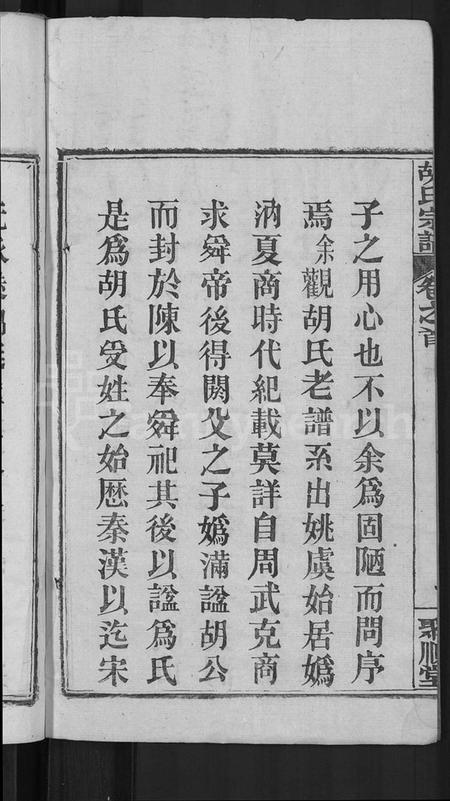 胡氏宗譜 卷之首 聚順堂
子之用心也不以余爲固陋而問序
焉余觀胡氏老譜系出姚虞始居嬀
汭夏商時代紀載莫詳自周武克商
求舜帝後得閼父之子嬀滿諡胡公
而封於陳以奉舜祀其後以諡爲氏
是爲胡氏受姓之始歷秦漢以迄宋